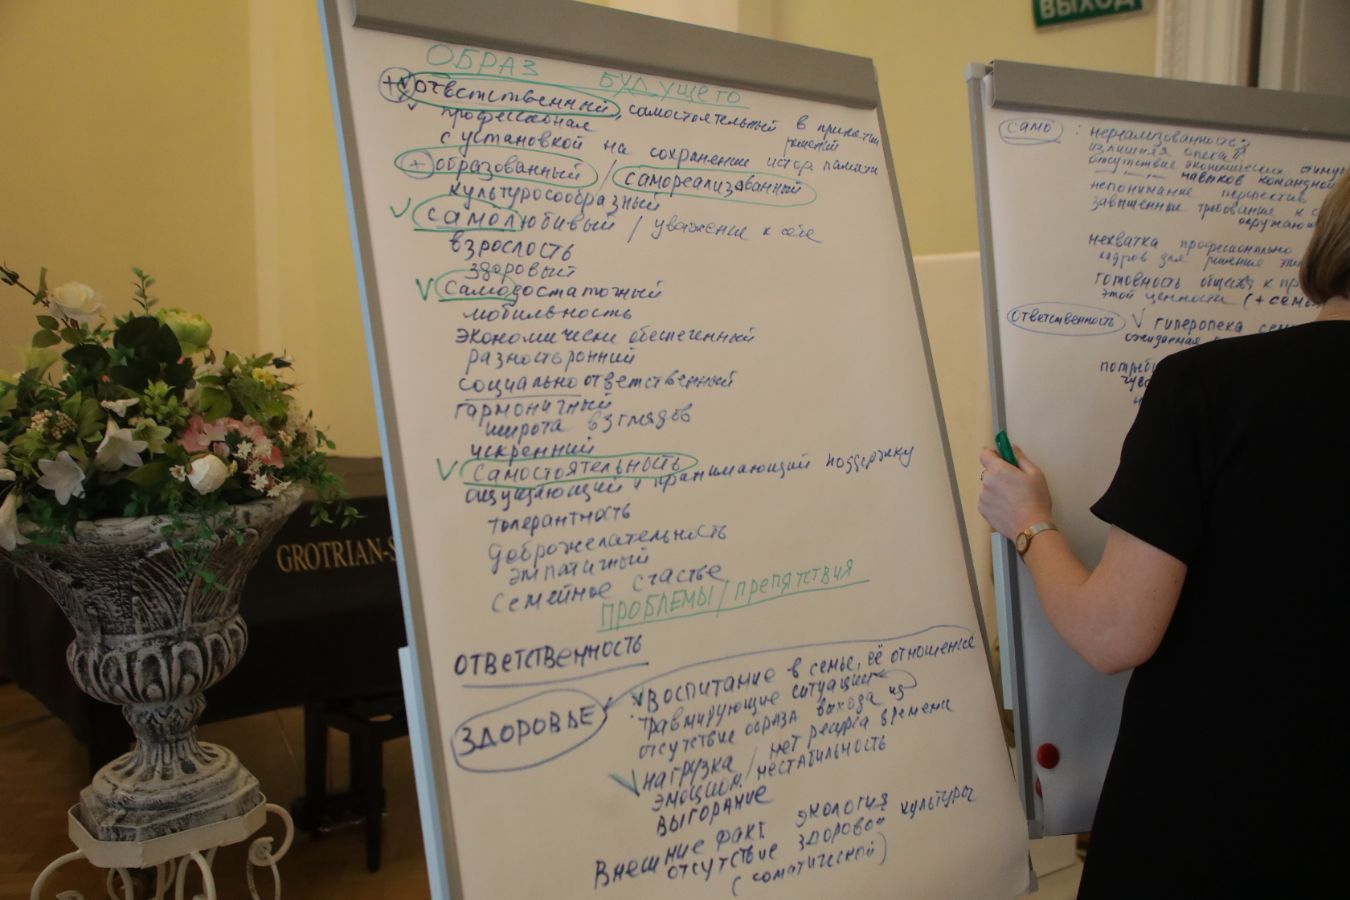 ВЫХОД
ОБРАЗ БУДУЩЕГО
+ ответственный, самостоятельный в принятии решений
профессионал
с установкой на сохранение истор. памяти
+ образованный / самореализованный
культуросообразный
самолюбивый / уважение к себе
взрослость
здоровый
самодостаточный
мобильность
экономически обеспеченный
разносторонний
социально ответственный
гармоничный
широта взглядов
искренний
самостоятельность
ощущающий и принимающий поддержку
толерантность
доброжелательность
эмпатичный
семейное счастье
ПРОБЛЕМЫ / ПРЕПЯТСТВИЯ
ответственность
ЗДОРОВЬЕ
воспитание в семье, её отношение
травмирующие ситуации
отсутствие образа выхода из
нагрузка / нет ресурса времени
эмоцион. нестабильность
выгорание
Внешние факт. экология
отсутствие здоровой культуры
(соматической)
само : нереализованность
излишняя опека
отсутствие экономических
навыков командной
непонимание перспектив
завышенные требования к
окружаю
нехватка профессионально
кадров для решения
готовность общества к
этой ценности (+ семь
ответственность гиперопека
ожидаемая
GROTRIAN-S